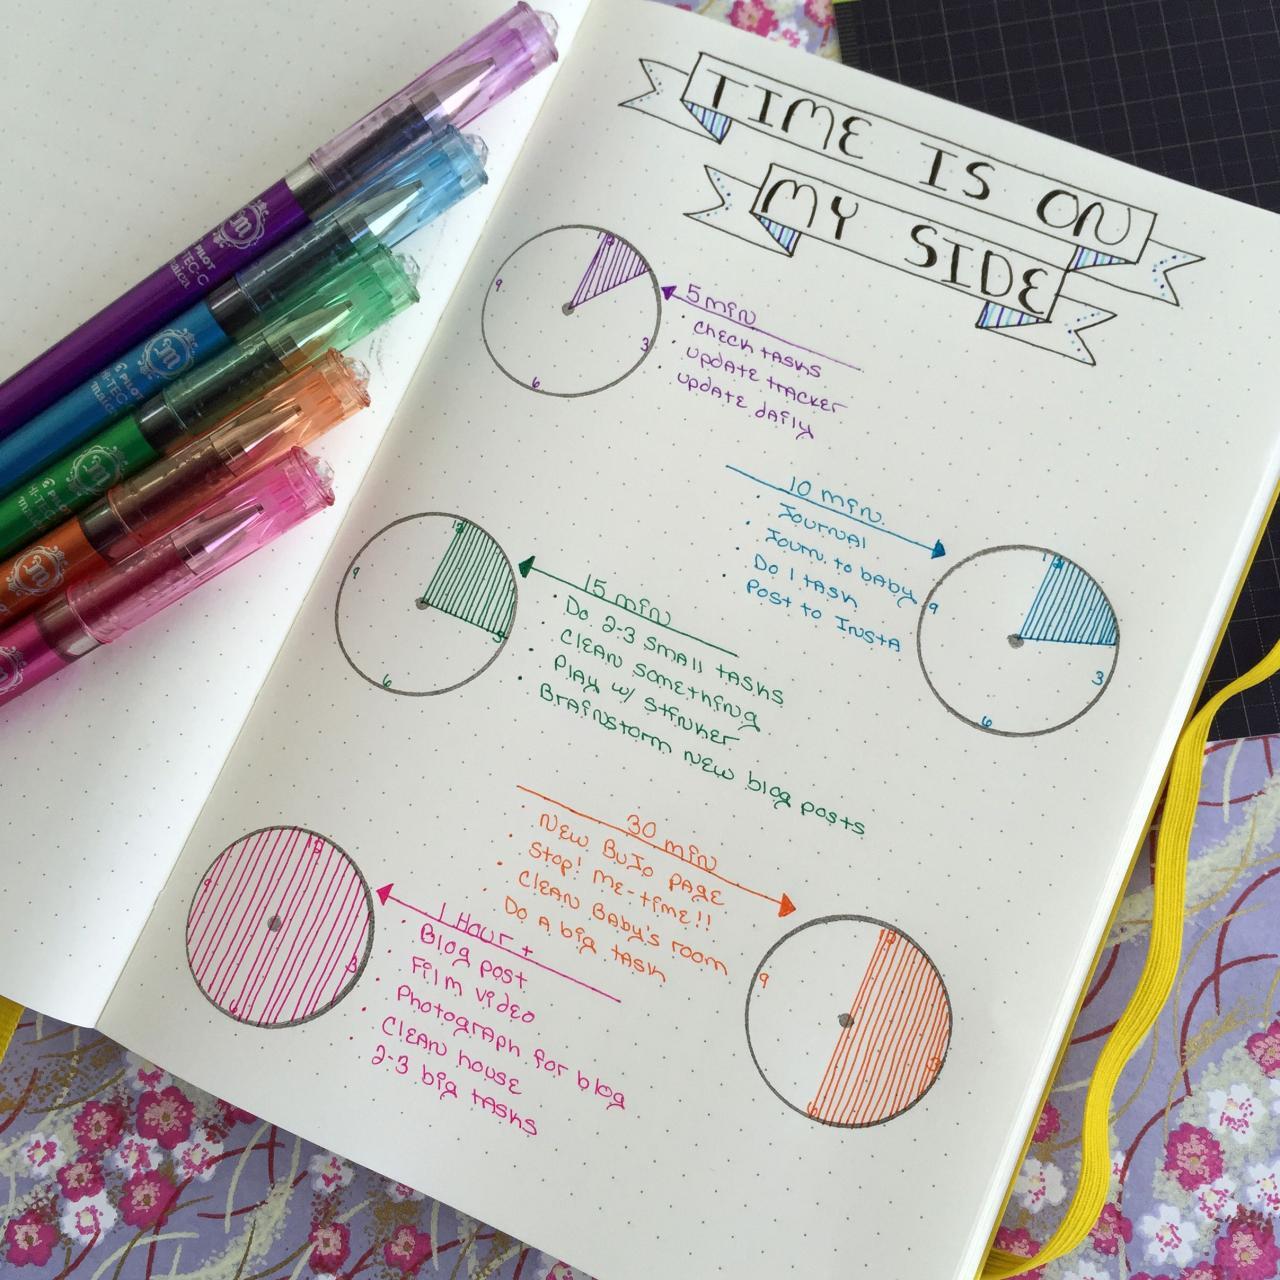 TIME IS ON
MY SIDE
12
3
6
9
5 min
• check tasks
• update tracker
• update daily
10 min.
• Journal
• Journ. to baby
• Do 1 task
• Post to Insta
12
3
6
9
15 min
• Do 2-3 small tasks
• Clean something
• Play w/ Stinker
• Brainstorm new blog posts
12
3
6
9
30 min
• New BuJo page
• Stop! Me-time!!
• Clean Baby's room
• Do a big task
12
3
6
9
1 Hour +
• Blog post
• Film video
• Photograph for blog
• Clean house
• 2-3 big tasks
12
3
6
9
m
PILOT
HI-TEC-C
maica
m
PILOT
HI-TEC-C
maica
m
PILOT
HI-TEC-C
maica
m